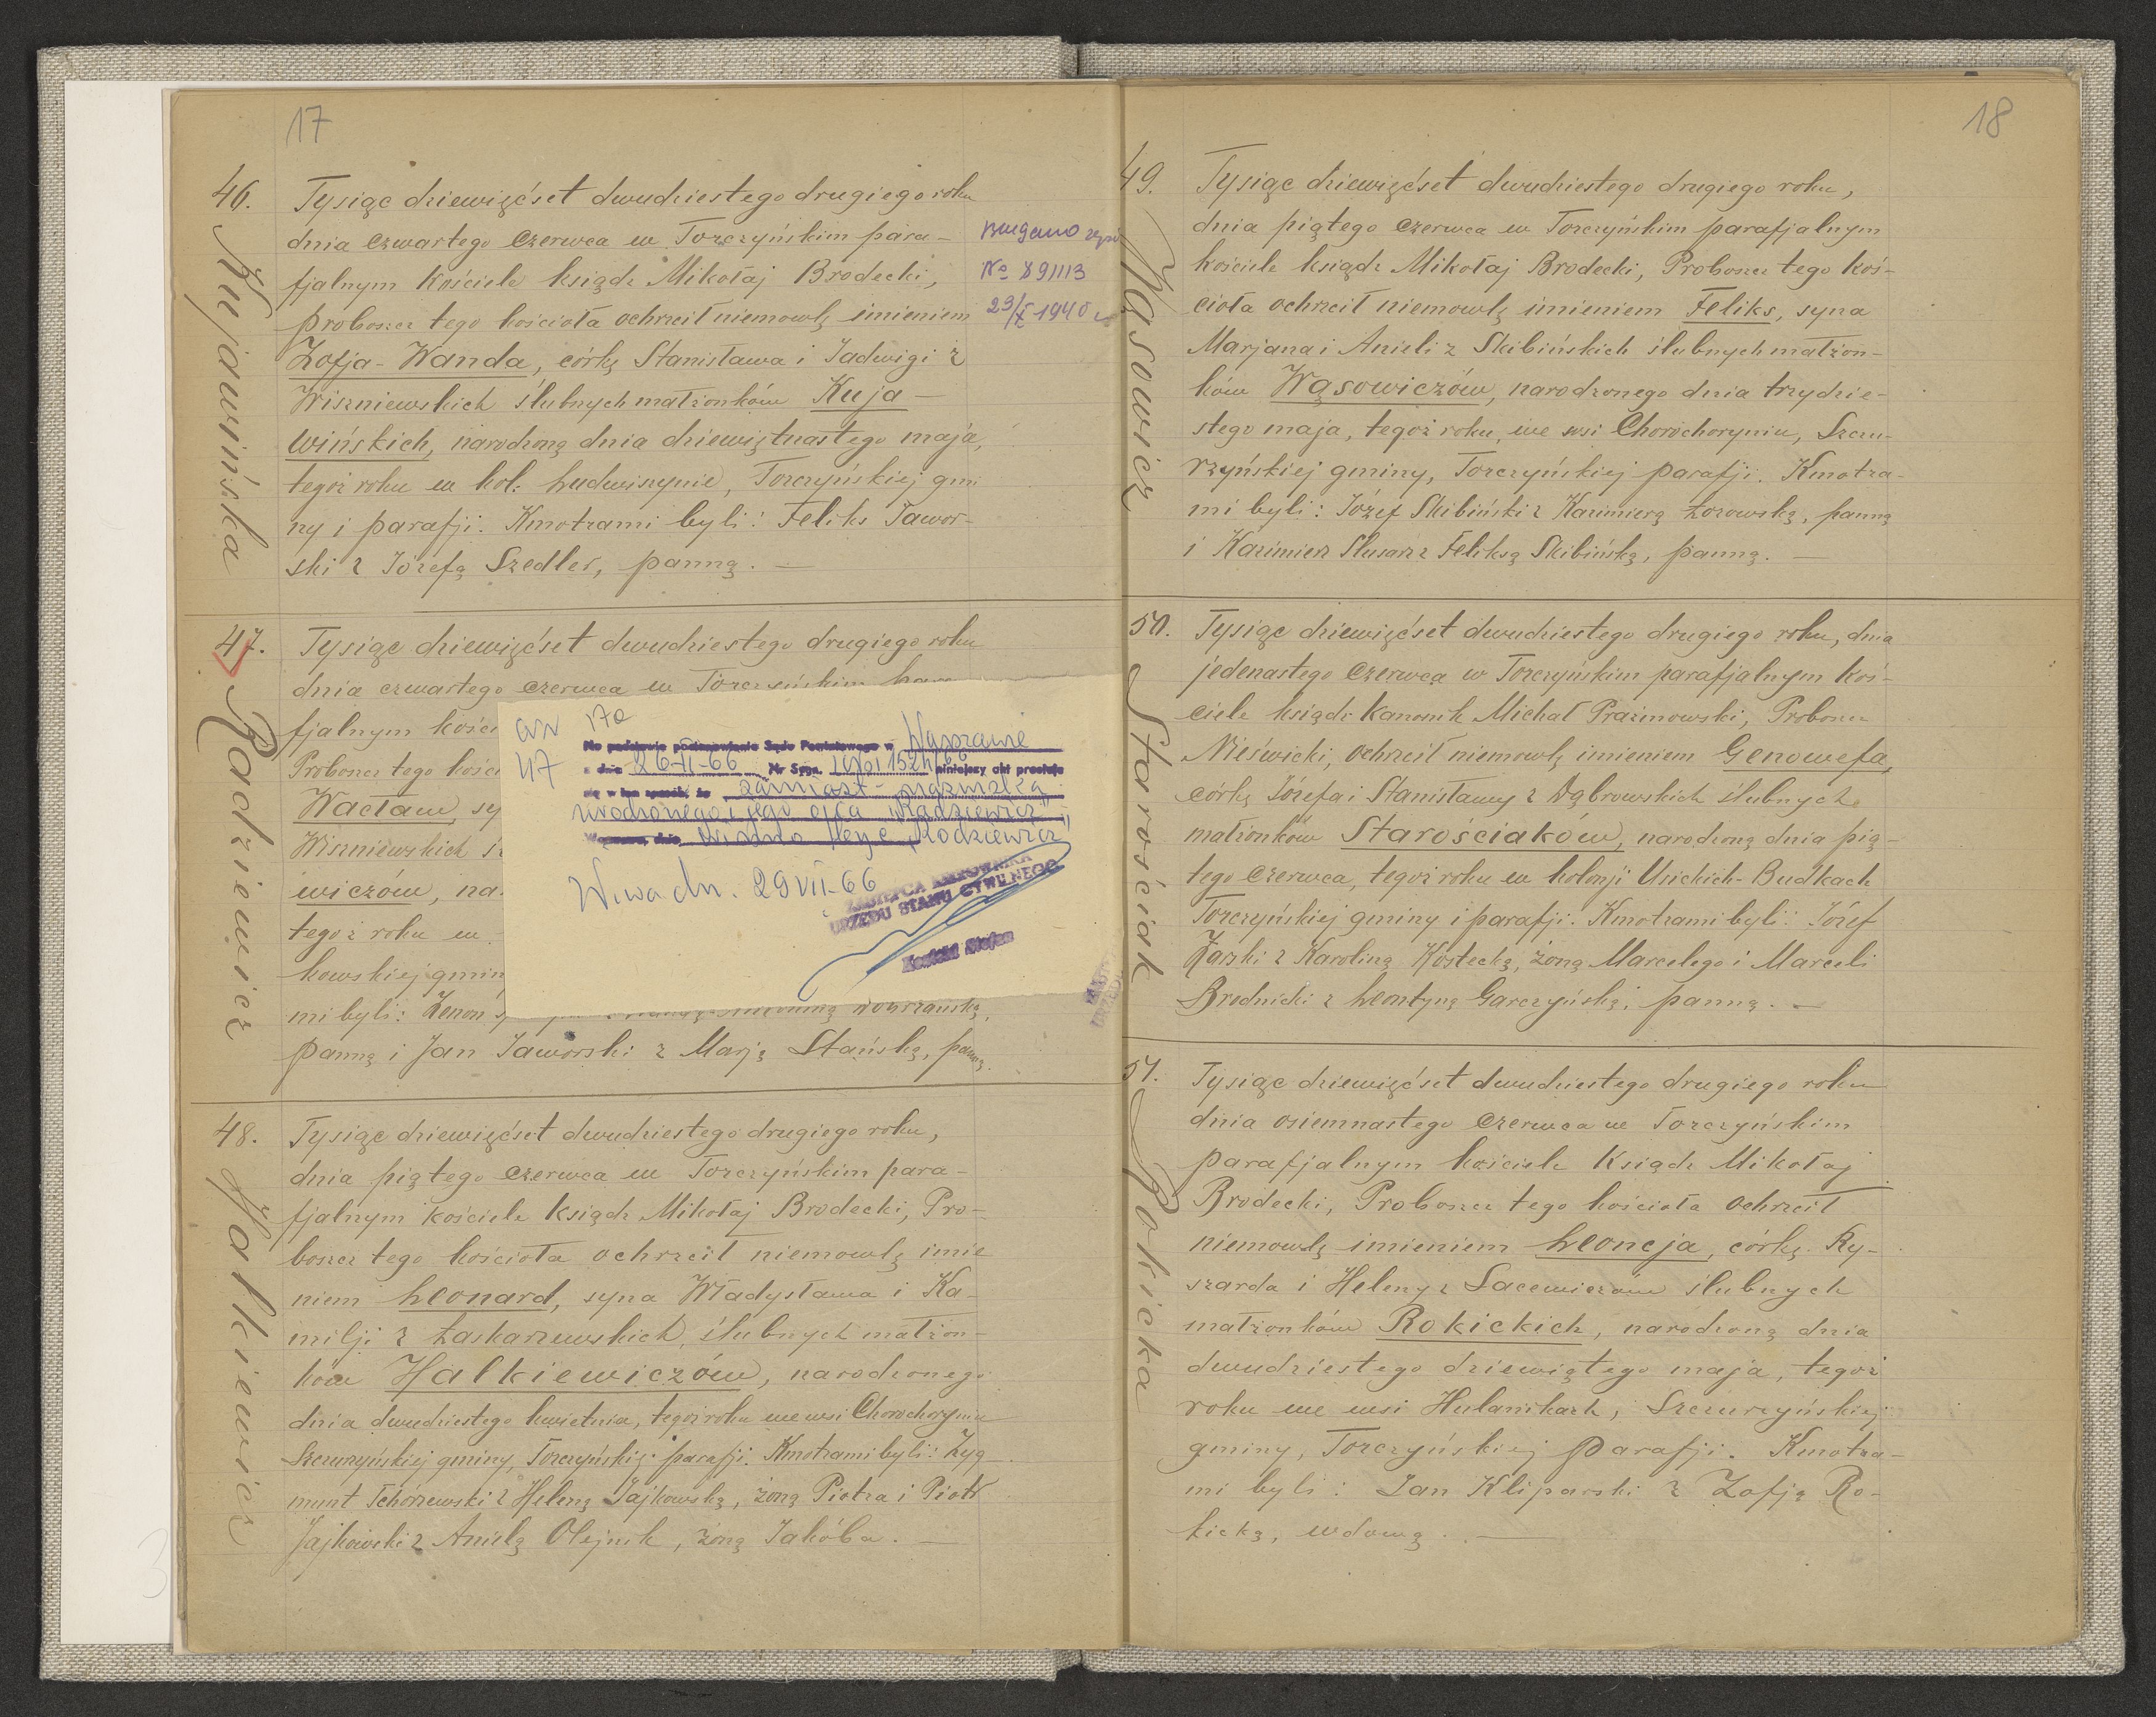 17
46.
Kujawińska
Tysiąc dziewięćset dwudziestego drugiego roku
dnia czwartego czerwca w Torczyńskim para-
fjalnym kościele ksiądz Mikołaj Brodecki,
proboszcz tego kościoła ochrzcił niemowlę imieniem
Zofja-Wanda, córkę Stanisława i Jadwigi z
Wiszniewskich ślubnych małżonków Kuja-
wińskich, narodzoną dnia dziewiętnastego maja,
tegoż roku w kol. Ludwiszynie, Torczyńskiej gmi
ny i parafji. Kmotrami byli: Feliks Jawor-
ski z Józefą Szedler, panną. —
№ 891113
23/X 1940 r
47.
Radziewicz
Tysiąc dziewięćset dwudziestego drugiego roku
dnia czwartego czerwca w Torczyńskim para
fjalnym kości
Proboszcz tego kości
Wacław, sy
Wiszniewskich śl
ewiczów, na
tegoż roku w
kowskiej gmin
mi byli: Zenon
panną i Jan Jaworski z Marją Stańską, panną.
17a
47
Na podstawie postanowienia Sądu Powiatowego w Warszawie
z dnia 26-VI-66 Nr Sygn. niniejszy akt prostuje
się w ten sposób, że zamiast - nazwiska
urodzonego i jego ojca „Radziewicz"
Warszawa, dnia winno być „Rodziewicz"
W-wa dn. 29 VII-66
ZASTĘPCA KIEROWNIKA
URZĘDU STANU CYWILNEGO
Stefan
48.
Halkiewicz
Tysiąc dziewięćset dwudziestego drugiego roku,
dnia piątego czerwca w Torczyńskim para-
fjalnym kościele ksiądz Mikołaj Brodecki, Pro-
boszcz tego kościoła ochrzcił niemowlę imie
niem Leonard, syna Władysława i Ka-
milji z Łaskarzewskich, ślubnych małżon-
ków Halkiewiczów, narodzonego
dnia dwudziestego kwietnia, tegoż roku we wsi Chorochoryniu
Szczurzyńskiej gminy, Torczyńskiej parafji. Kmotrami byli: Zyg-
munt Tchórzewski z Heleną Jajkowską, żoną Piotra i Piotr
Jajkowski z Anielą Olejnik, żoną Jakóba. —
18
49.
Wąsowicz
Tysiąc dziewięćset dwudziestego drugiego roku,
dnia piątego czerwca w Torczyńskim parafjalnym
kościele ksiądz Mikołaj Brodecki, Proboszcz tego koś-
cioła ochrzcił niemowlę imieniem Feliks, syna
Marjana i Anieli z Skibińskich ślubnych małżon-
ków Wąsowiczów, narodzonego dnia trzydzie-
stego maja, tegoż roku, we wsi Chorochoryniu, Szczu-
rzyńskiej gminy, Torczyńskiej parafji. Kmotra-
mi byli: Józef Skibiński z Kazimierą Łozowską, panną
i Kazimierz Slusarz z Feliksą Skibińską, panną. —
50.
Starościak
Tysiąc dziewięćset dwudziestego drugiego roku, dnia
jedenastego czerwca w Torczyńskim parafjalnym koś-
ciele ksiądz Kanonik Michał Prażmowski, Proboszcz
Nieświcki, ochrzcił niemowlę imieniem Genowefa,
córkę Józefa i Stanisławy z Dąbrowskich ślubnych
małżonków Starościaków, narodzoną dnia pią-
tego czerwca, tegoż roku w kolonji Usickich-Budkach
Torczyńskiej gminy i parafji. Kmotrami byli: Józef
Żarski z Karoliną Kostecką, żoną Marcelego i Marceli
Brodnicki z Leontyną Garczyńską, panną. —
51.
Rokicka
Tysiąc dziewięćset dwudziestego drugiego roku
dnia osiemnastego czerwca we Torczyńskim
parafjalnym kościele Ksiądz Mikołaj
Brodecki, Proboszcz tego kościoła ochrzcił
niemowlę imieniem Leoncja, córkę Ry-
szarda i Heleny z Sacewiczów ślubnych
małżonków Rokickich, narodzoną dnia
dwudziestego dziewiątego maja, tegoż
roku we wsi Hulanikach, Szczurzyńskiej
gminy, Torczyńskiej Parafji. Kmotra-
mi byli: Jan Kliparski z Zofją Ro-
kicką, wdową. —